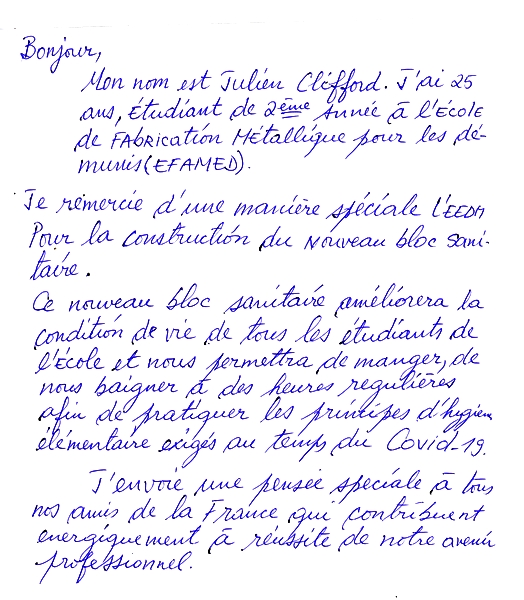 Bonjour,
Mon nom est Julien Cléfford. J'ai 25
ans, étudiant de 2ème Année à l'École
de FAbrication Métallique pour les dé-
munis (EFAMED).
Je remercie d'une manière spéciale l'EEDH
Pour la construction du Nouveau bloc sani-
taire.
Ce nouveau bloc sanitaire améliorera la
condition de vie de tous les étudiants de
l'École et nous permettra de manger, de
nous baigner à des heures regulières
afin de pratiquer les principes d'hygiène
élémentaire exigés au temps du Covid-19.
J'envoie une pensée spéciale à tous
nos amis de la France qui contribuent
energiquement à réussite de notre avenir
professionnel.